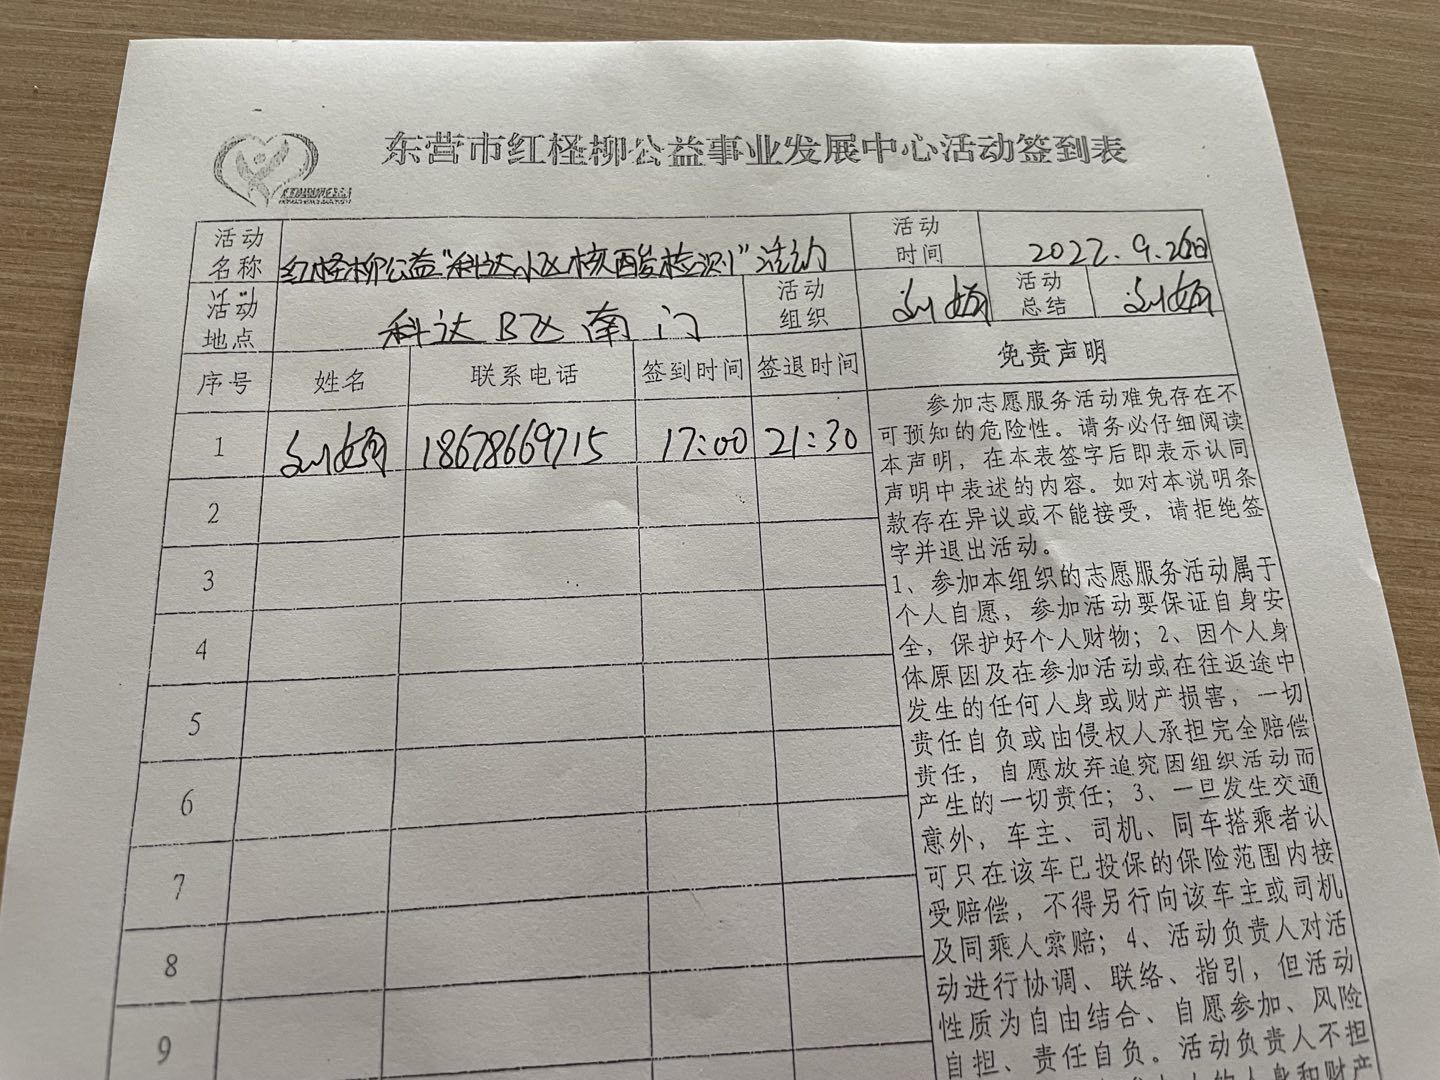 东营市红柽柳公益事业发展中心活动签到表
活动名称 红柽柳公益“科达小区核酸检测”活动 活动时间 2022.9.26日
活动地点 科达B区南门 活动组织 活动总结
序号 姓名 联系电话 签到时间 签退时间 免责声明
1 18678669715 17:00 21:30
2
3
4
5
6
7
8
9
参加志愿服务活动难免存在不
可预知的危险性。请务必仔细阅读
本声明，在本表签字后即表示认同
声明中表述的内容。如对本说明条
款存在异议或不能接受，请拒绝签
字并退出活动。
1、参加本组织的志愿服务活动属于
个人自愿，参加活动要保证自身安
全，保护好个人财物；2、因个人身
体原因及在参加活动或在往返途中
发生的任何人身或财产损害，一切
责任自负或由侵权人承担完全赔偿
责任，自愿放弃追究因组织活动而
产生的一切责任；3、一旦发生交通
意外，车主、司机、同车搭乘者认
可只在该车已投保的保险范围内接
受赔偿，不得另行向该车主或司机
及同乘人索赔；4、活动负责人对活
动进行协调、联络、指引，但活动
性质为自由结合、自愿参加、风险
自担、责任自负。活动负责人不担
的人身和财产